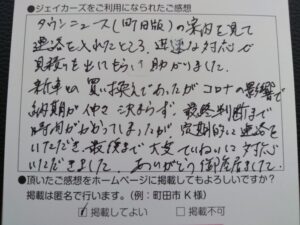 ●ジェイカーズをご利用になられたご感想
タウンニュース(町田版)の案内を見て
連絡を入れたところ、迅速な対応で
見積りを出してもらい助かりました。
新車の買い換えであったがコロナの影響で
納期が中々決まらず、最終判断まで
時間がかかってしまったが定期的に連絡を
いただき、最後まで大変ていねいに対応
いただきました。ありがとう御座居ました。
●頂いたご感想をホームページに掲載してもよろしいですか?
掲載は匿名で行います。(例:町田市K様)
☑掲載してよい □掲載不可